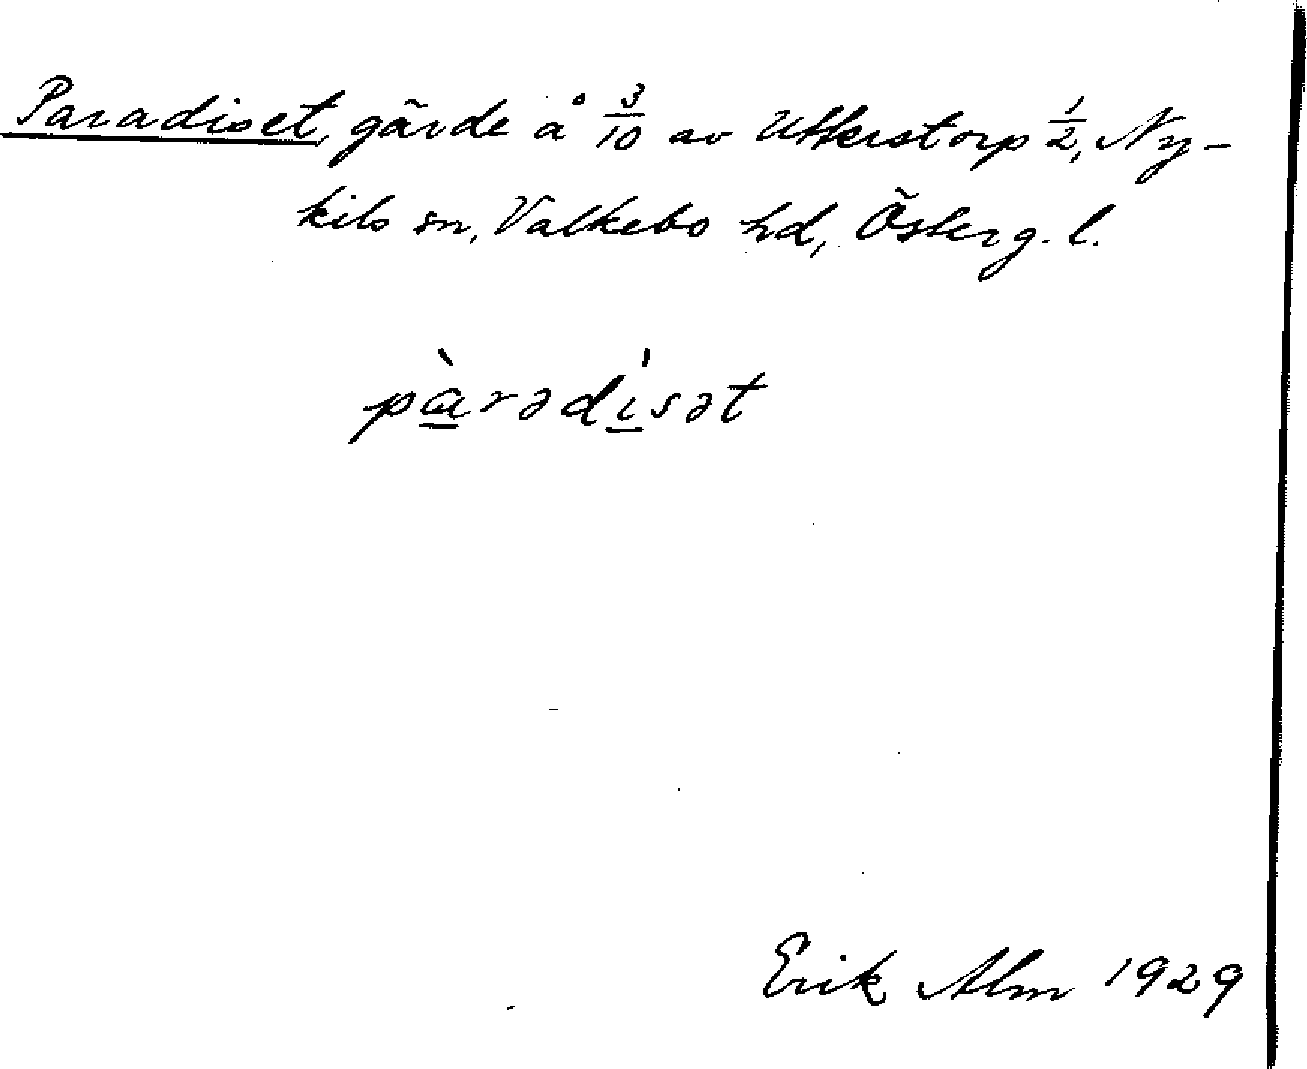 Paradiset, gärde å 3/10 av Utterstorp 1/2, Ny-
kils sn, Valkebo hd, Österg. l.
pàrədi̍sət
Erik Alm 1929